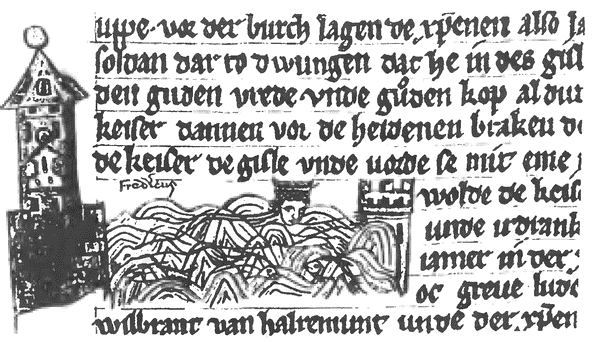 uppe. vor der burch lagen de xp̄enen also la
soldan dar to dwungen dat he in des gisl
den guden vrede vnde gůden kop al dur
keiser dannen vor de heidenen braken de
de keiser de gisle vnde uorde se mit eme
wolde de keis
unde irdrank
iamer in der
oc greve lud
wilbrant van halremunt unde der xp̄en